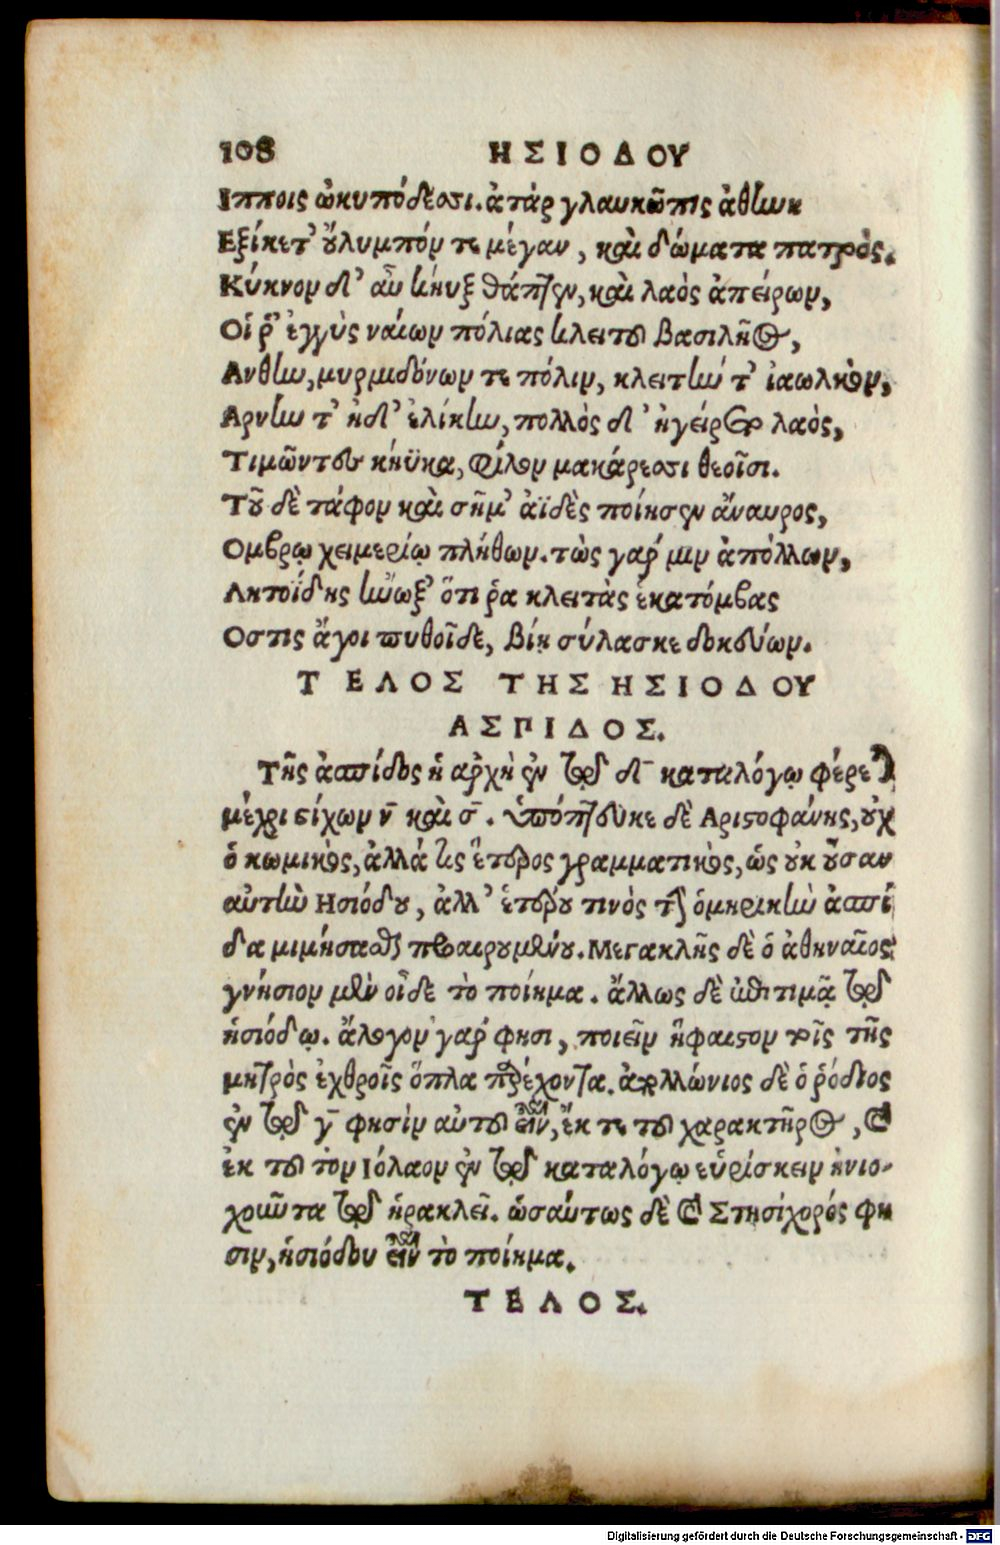 108 ΗΣΙΟΔΟΥ
Ιπποις ὠκυπόδεσσι. ἀτὰρ γλαυκῶπις ἀθήνη
Εξίκετ' οὔλυμπόν τε μέγαν, καὶ δώματα πατρὸς.
Κύκνον δ' αὖ κήυξ θάπτεν, καὶ λαὸς ἀπείρων,
Οἵ ῥ' ἐγγὺς ναίων πόλιας κλειτοῦ βασιλῆος,
Ανθην, μυρμιδόνων τε πόλιν, κλειτήν τ' ἰαωλκὸν,
Αρνην τ' ἠδ' ἑλίκην, πολλὸς δ' ἠγείρετο λαὸς,
Τιμῶντες κήϋκα, φίλον μακάρεσσι θεοῖσι.
Τοῦ δὲ τάφον καὶ σῆμ' ἀϊδὲς ποίησεν ἄναυρος,
Ομβρῳ χειμερίῳ πλήθων. τὼς γάρ μιν ἀπόλλων,
Λητοίδης ἤνωξ' ὅτι ῥα κλειτὰς ἑκατόμβας
Οστις ἄγοι πυθοῖδε, βίῃ σύλασκε δοκεύων.
ΤΕΛΟΣ ΤΗΣ ΗΣΙΟΔΟΥ
ΑΣΠΙΔΟΣ.
Τῆς ἀσπίδος ἡ ἀρχὴ ἐν τῷ δ̄ καταλόγῳ φέρεται
μέχρι στίχων ν̄ καὶ σ̄. ὑπόπτευκε δὲ Αριστοφάνης, οὐχ
ὁ κωμικὸς, ἀλλά τις ἕτερος γραμματικὸς, ὡς οὐκ οὖσαν
αὐτὴν Ησιόδου, ἀλλ' ἑτέρου τινὸς τὴν ὁμηρικὴν ἀσπί
δα μιμήσασθαι προαιρουμένου. Μεγακλῆς δὲ ὁ ἀθηναῖος
γνήσιον μὲν οἶδε τὸ ποίημα. ἄλλως δὲ ἐπιτιμᾷ τῷ
ἡσιόδῳ. ἄλογον γάρ φησι, ποιεῖν ἥφαιστον τοῖς τῆς
μητρὸς ἐχθροῖς ὅπλα παρέχοντα. ἀπολλώνιος δὲ ὁ ῥόδιος
ἐν τῷ γ̄ φησὶν αὐτοῦ εἶναι, ἔκ τε τοῦ χαρακτῆρος, καὶ
ἐκ τοῦ τὸν Ιόλαον ἐν τῷ καταλόγῳ εὑρίσκειν ἡνιο-
χοῦντα τῷ ἡρακλεῖ. ὡσαύτως δὲ καὶ Στησίχορός φη
σιν, ἡσιόδου εἶναι τὸ ποίημα.
ΤΕΛΟΣ.
Digitalisierung gefördert durch die Deutsche Forschungsgemeinschaft - DFG